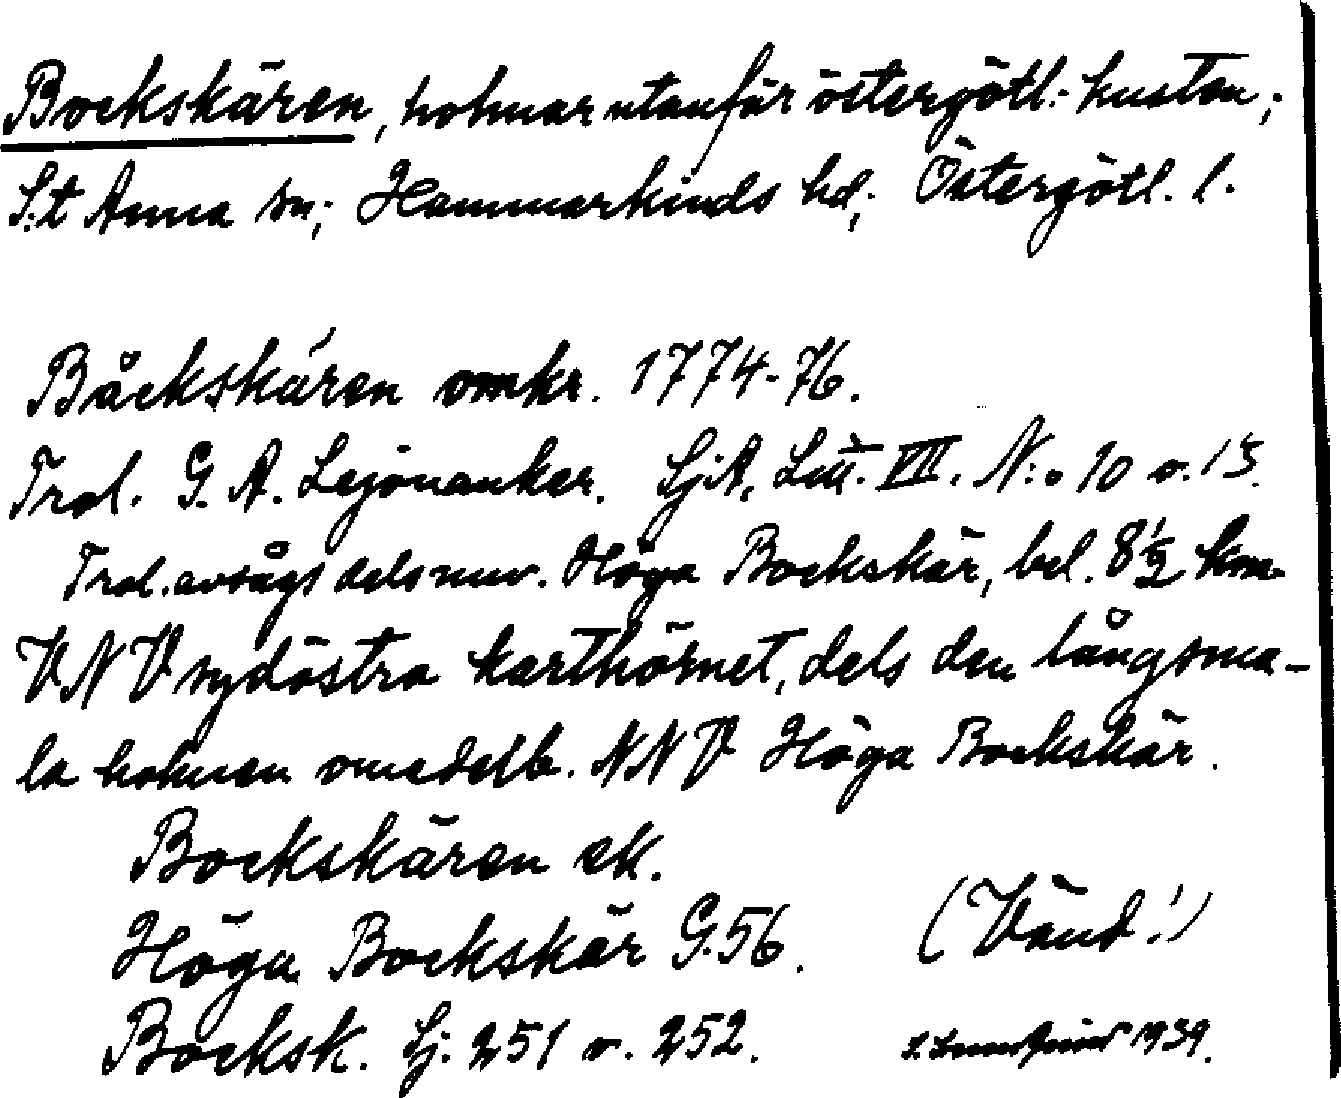 Bockskären, holmar utanför östergötl. kusten;
S:t Anna sn; Hammarkinds hd; Östergötl. l.
Båckskären omkr. 1774-76.
Trol. G. A. Lejonanker. SjA, Litt. VII. N:o 10 o. 15.
Trol. avságs dels nuv. Höga Bockskär, bel. 8 1/2 km.
VNV sydöstra karthörnet, dels den långsma-
la holmen omedelb. NNV Höga Bockskär.
Bockskären ek.
Höga Bockskär G. 56. (Vänd!)
Bocksk. Sj. 251 o. 252. 1939.